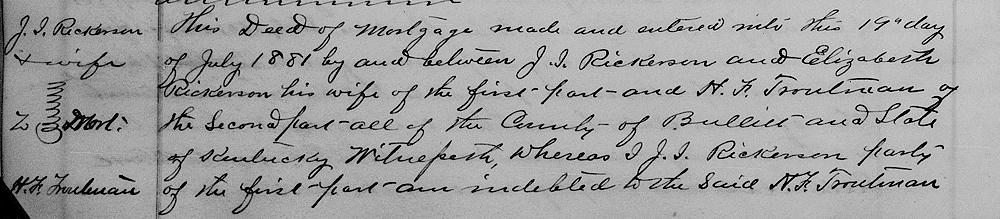 J. I. Rickerson
& wife
Z Mort:
H. F. Troutman
This Deed of Mortgage made and entered into this 19" day
of July 1881 by and between J. I. Rickerson and Elizabeth
Rickerson his wife of the first part and H. F. Troutman of
the Second part all of the County of Bullitt and State
of Kentucky Witnesseth, Whereas I J. I. Rickerson party
of the first part am indebted to the Said H. F. Troutman